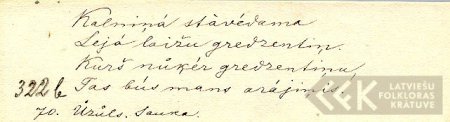 Kalniņā stāvēdama
Leju laižu gredzentiņ.
Kurš nuķēr gredzentiņu,
322b Tas būs mans arājiņis.
70. Ūzuls. Sauka.
LATVIEŠU
FOLKLORAS
KRĀTUVE